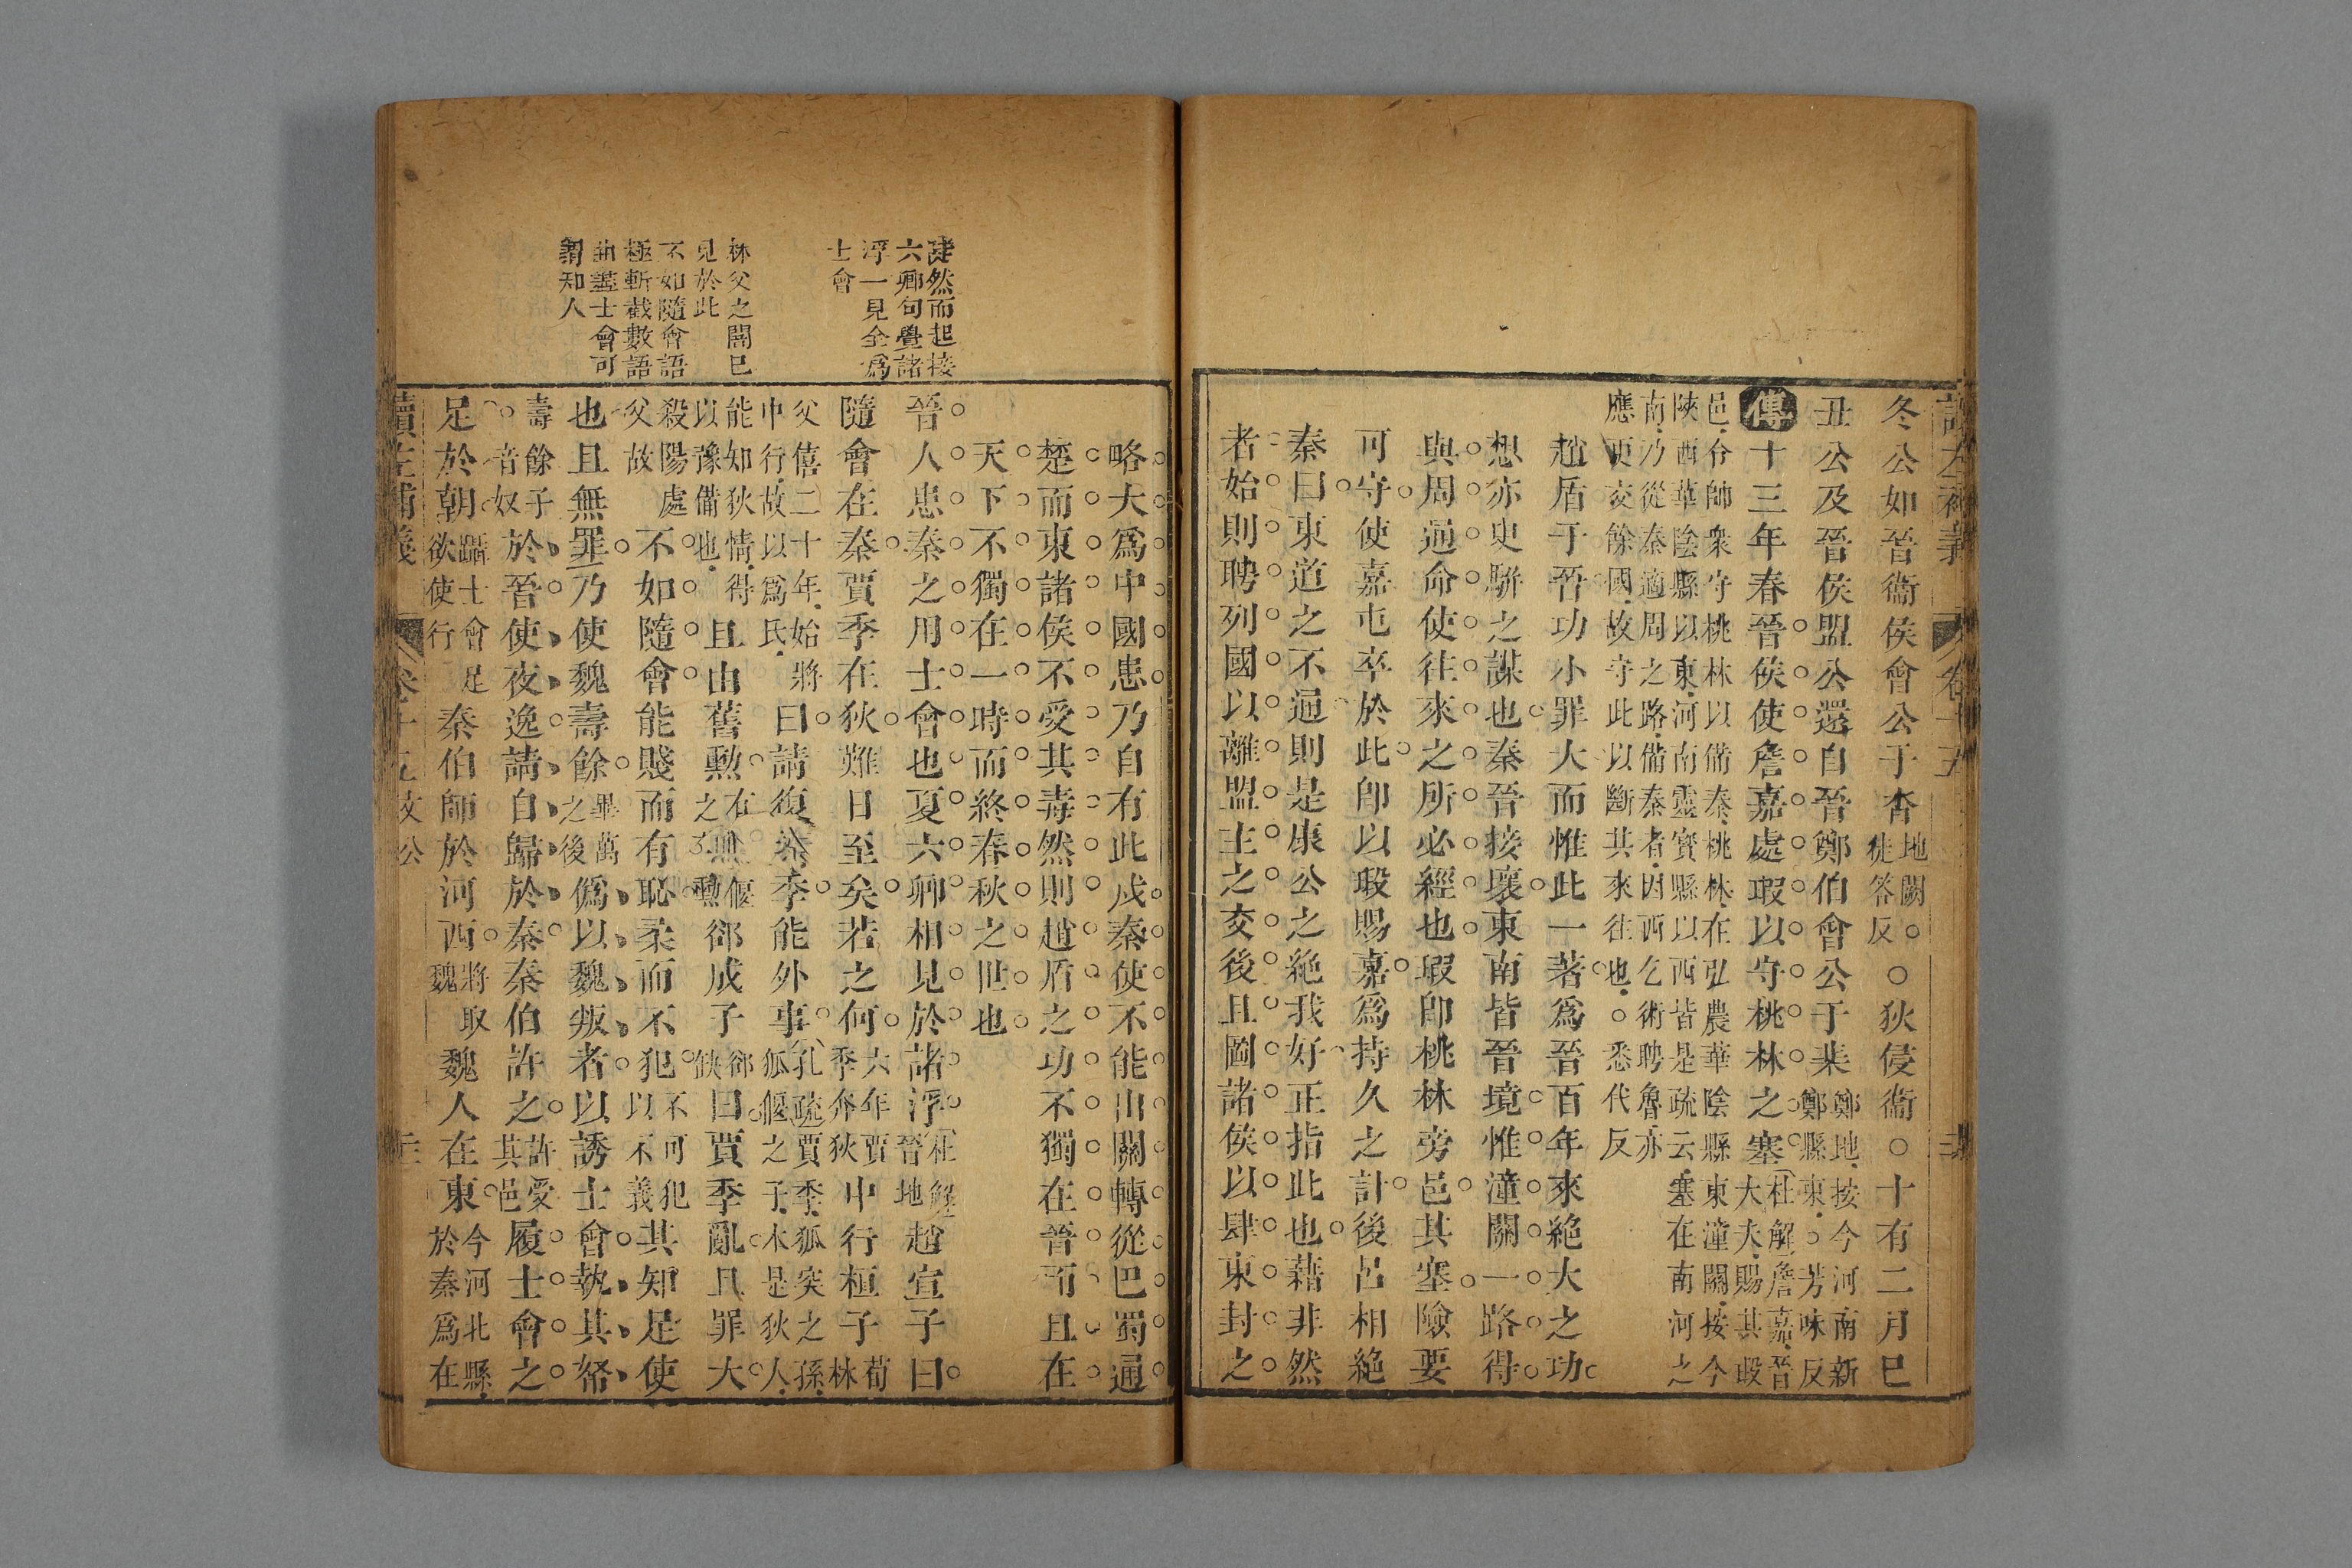 冬公如晉衞侯會公于沓地闕。徒答反○狄侵衞○十有二月巳
丑公及晉侯盟公還自晉鄭伯會公于棐鄭地按今河南新鄭縣東○芳味反
傳十三年春晉侯使詹嘉處瑕以守桃林之塞杜解詹嘉晉大夫賜其瑕
邑令帥衆守桃林以備秦桃林在弘農華陰縣東潼關按今
陝西華陰縣以東河南靈寳縣以西皆是疏云塞在南河之
南乃從秦適周之路備秦者因西乞術聘魯亦
應更交餘國故守此以斷其來往也○悉代反
趙盾于晉功小罪大而惟此一著爲晉百年來絶大之功
想亦史駢之謀也秦晉接壤東南皆晉境惟潼關一路得
與周通命使往來之所必經也瑕卽桃林旁邑其塞險要
可守使嘉屯卒於此卽以瑕賜嘉爲持久之計後呂相絶
秦曰東道之不通則是康公之絶我好正指此也藉非然
者始則聘列國以離盟主之交後且圖諸侯以肆東封之
略大爲中國患乃自有此戍秦使不能出關轉從巴蜀通
楚而東諸侯不受其毒然則趙盾之功不獨在晉而且在
天下不獨在一時而終春秋之世也
晉人患秦之用士會也夏六卿相見於諸浮杜解晉地趙宣子曰
隨會在秦賈季在狄難日至矣若之何六年賈季奔狄中行桓子荀林
父僖二十年始將中行故以爲氏曰請復賈季能外事孔疏賈季狐突之孫狐偃之子木是狄人
能如狄情得以豫備也且由舊勳有狐偃之舊勳郤成子郤缺曰賈季亂且罪大
殺陽處父故不如隨會能賤而有恥柔而不犯不可犯以不義其知足使
也且無罪乃使魏壽餘畢萬之後僞以魏叛者以誘士會執其帑
壽餘子○音奴於晉使夜逸請自歸於秦秦伯許之許受其邑履士會之
足於朝躡士會足欲使行秦伯師於河西將取魏魏人在東今河北縣於秦爲在
讀左補義
卷十五 文公
突然而起接
六卿句覺諸
浮一見全爲
士會
林父之闇已
見於此
不如隨會語
極斬截數語
曲盡士會可
謂知人